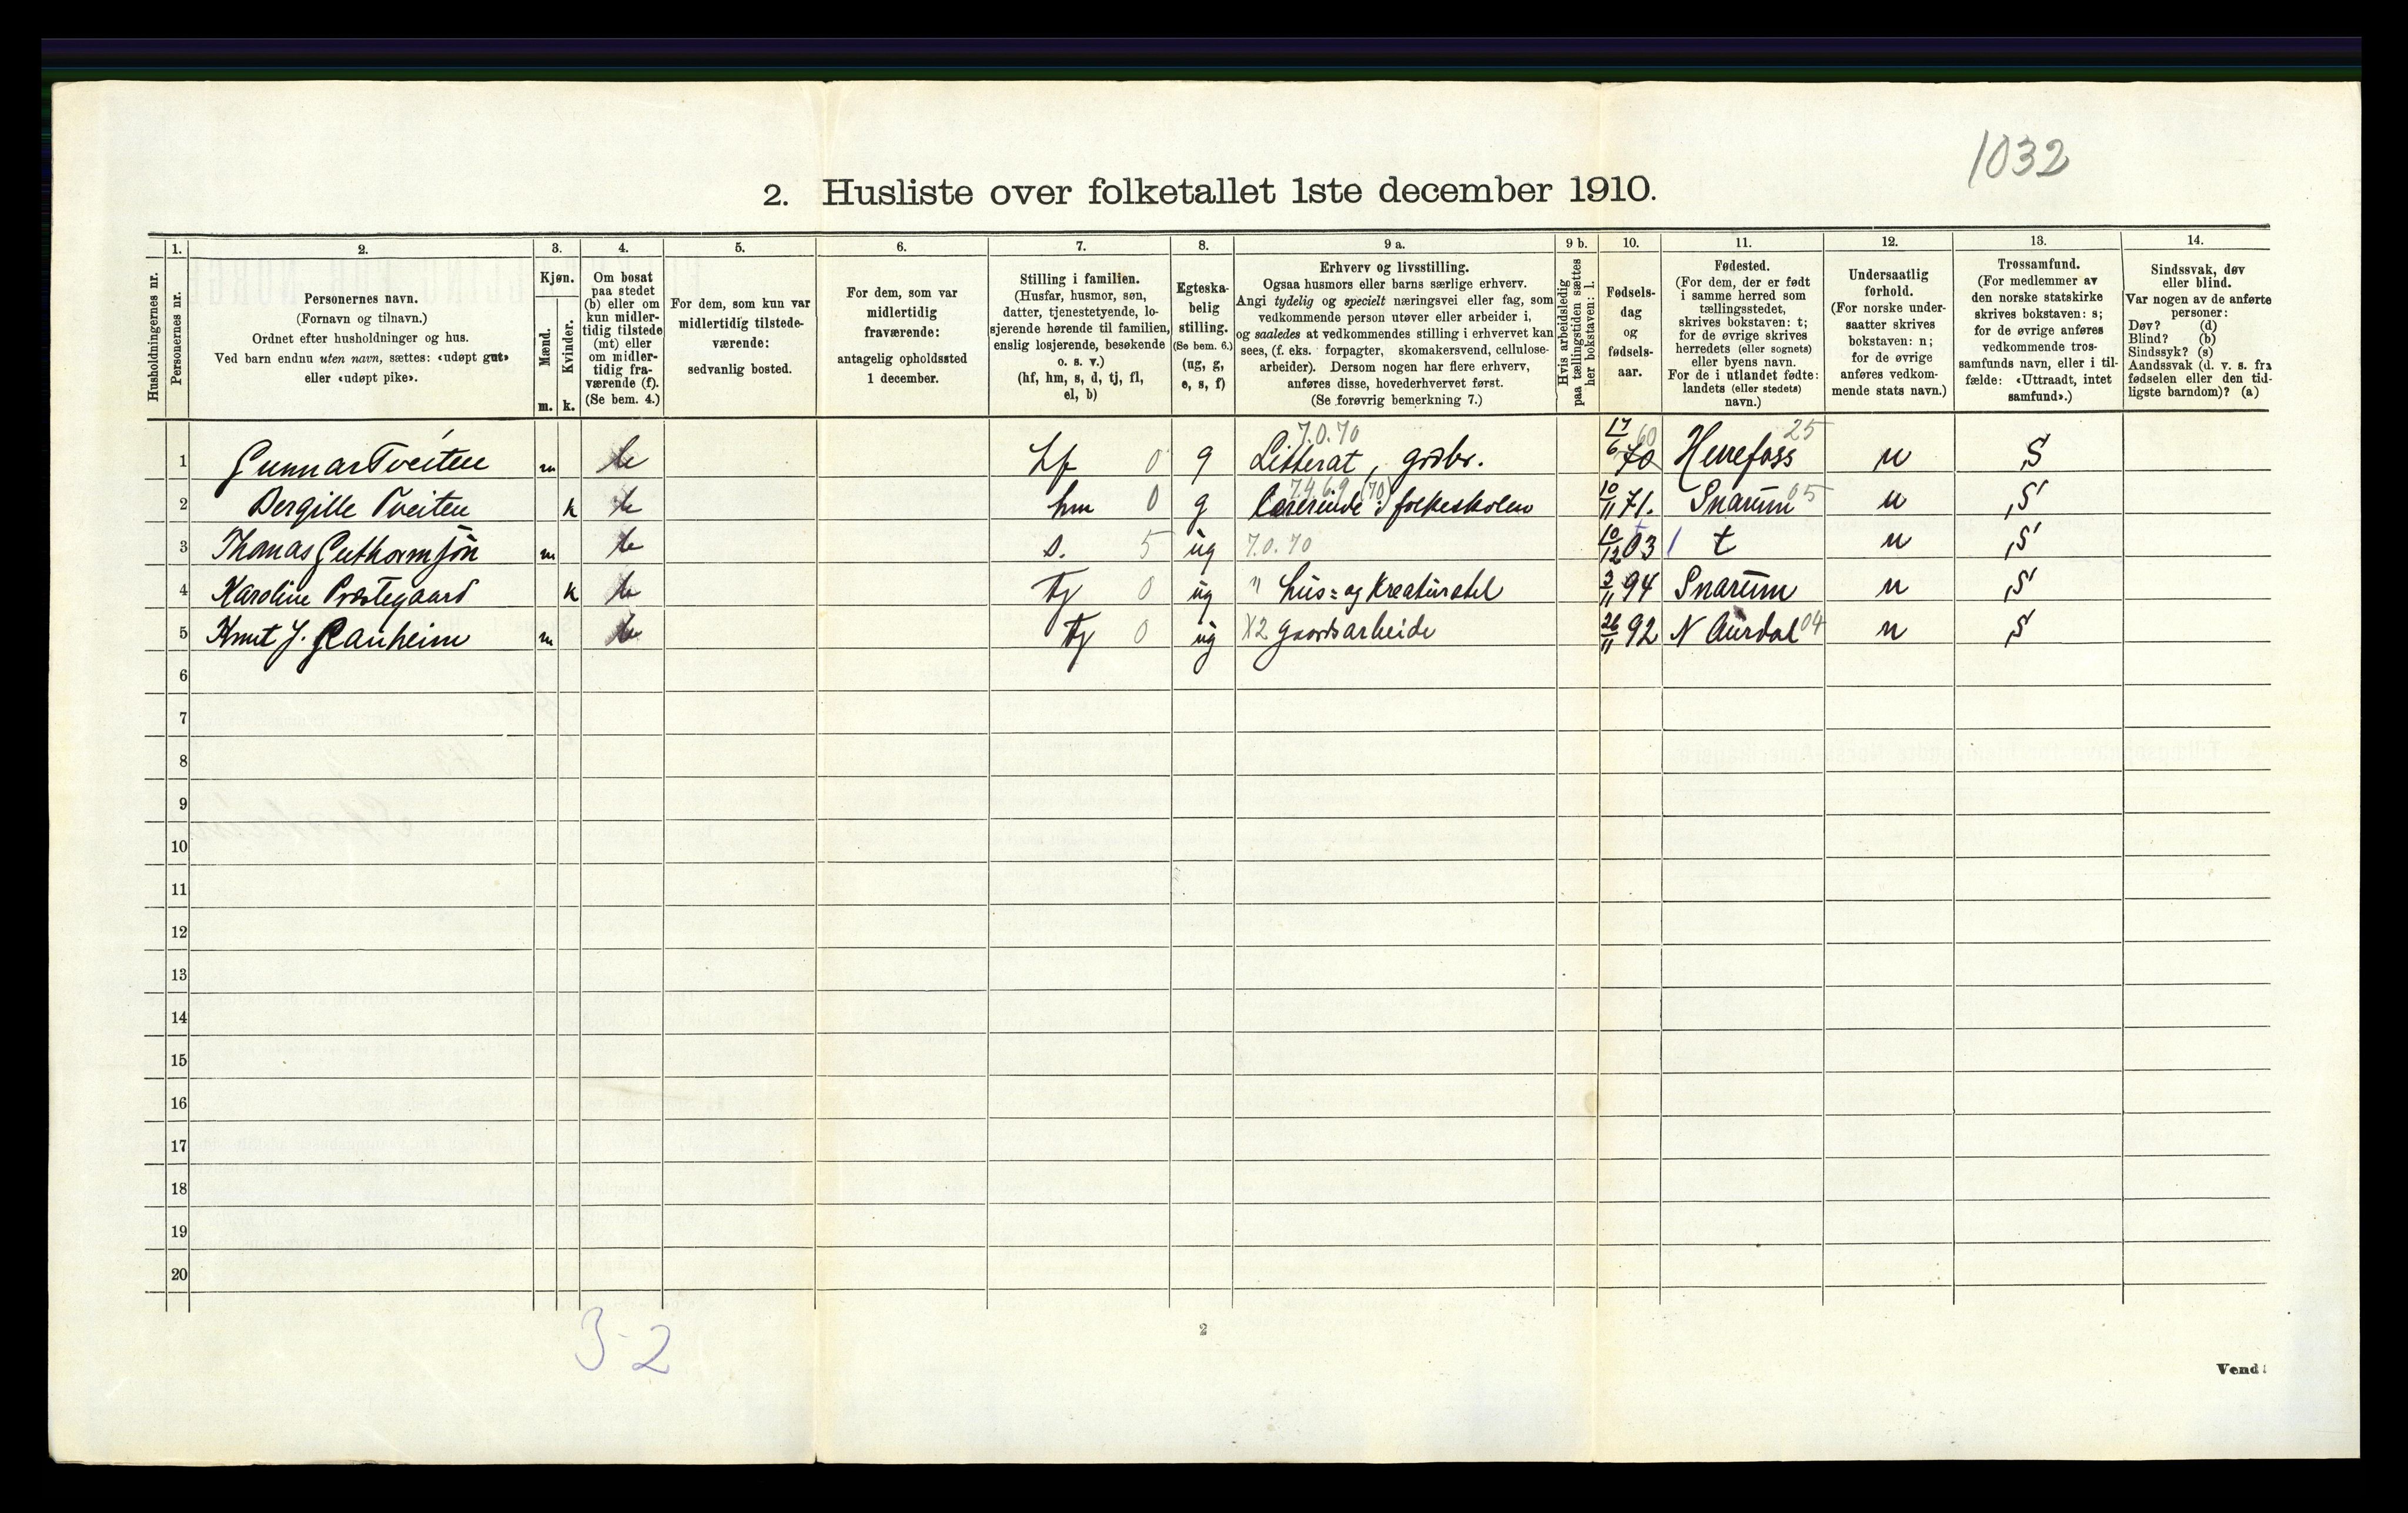 1032
2. Husliste over folketallet 1ste december 1910.
Husholdningernes nr.
1.
Personernes nr.
2.
Personernes navn.
(Fornavn og tilnavn.)
Ordnet efter husholdninger og hus.
Ved barn endnu uten navn, sættes: «udøpt gut»
eller «udøpt pike».
3.
Kjøn.
Mænd.
Kvinder.
m. k.
4.
Om bosat
paa stedet
(b) eller om
kun midler-
tidig tilstede
(mt) eller
om midler-
tidig fra-
værende (f).
(Se bem. 4.)
5.
For dem, som kun var
midlertidig tilstede-
værende:
sedvanlig bosted.
6.
For dem, som var
midlertidig
fraværende:
antagelig opholdssted
1 december.
7.
Stilling i familien.
(Husfar, husmor, søn,
datter, tjenestetyende, lo-
sjerende hørende til familien,
enslig losjerende, besøkende
o. s. v.)
(hf, hm, s, d, tj, fl,
el, b)
8.
Egteska-
belig
stilling.
(Se bem. 6.)
(ug, g,
e, s, f)
9 a.
Erhverv og livsstilling.
Ogsaa husmors eller barns særlige erhverv.
Angi tydelig og specielt næringsvei eller fag, som
vedkommende person utøver eller arbeider i,
og saaledes at vedkommendes stilling i erhvervet kan
sees, (f. eks. forpagter, skomakersvend, cellulose-
arbeider). Dersom nogen har flere erhverv,
anføres disse, hovederhvervet først.
(Se forøvrig bemerkning 7.)
9 b.
Hvis arbeidsledig
paa tællingstiden sættes
her bokstaven: l.
10.
Fødsels-
dag
og
fødsels-
aar.
11.
Fødested.
(For dem, der er født
i samme herred som
tællingsstedet,
skrives bokstaven: t;
for de øvrige skrives
herredets (eller sognets)
eller byens navn.
For de i utlandet fødte:
landets (eller stedets)
navn.)
12.
Undersaatlig
forhold.
(For norske under-
saatter skrives
bokstaven: n;
for de øvrige
anføres vedkom-
mende stats navn.)
13.
Trossamfund.
(For medlemmer av
den norske statskirke
skrives bokstaven: s;
for de øvrige anføres
vedkommende tros-
samfunds navn, eller i til-
fælde: «Uttraadt, intet
samfund».)
14.
Sindssvak, døv
eller blind.
Var nogen av de anførte
personer:
Døv? (d)
Blind? (b)
Sindssyk? (s)
Aandssvak (d. v. s. fra
fødselen eller den tid-
ligste barndom)? (a)
7.0.70 17/6 60 25
1 Gunnar Tveiten m b hf 0 g Litterat, grdbr. 70 Herrefoss n S
7.4.6.9 (70) 05
2 Bergille Tveiten k b hm 0 g Lærerinde i folkeskolen 10/11 71. Snarum n S
3 Thomas Guthormsøn m b s. 5 ug 7.0.70 10/12 03 t n S
4 Karoline Præstegaard k b tj 0 ug " hus= og kreaturstel 3/11 94 Snarum n S
5 Knut J. Ranheim m b tj 0 ug X2 gaardsarbeide 26/11 92 N Aurdal 04 n S
6
7
8
9
10
11
12
13
14
15
16
17
18
19
20
3-2
2
Vend!